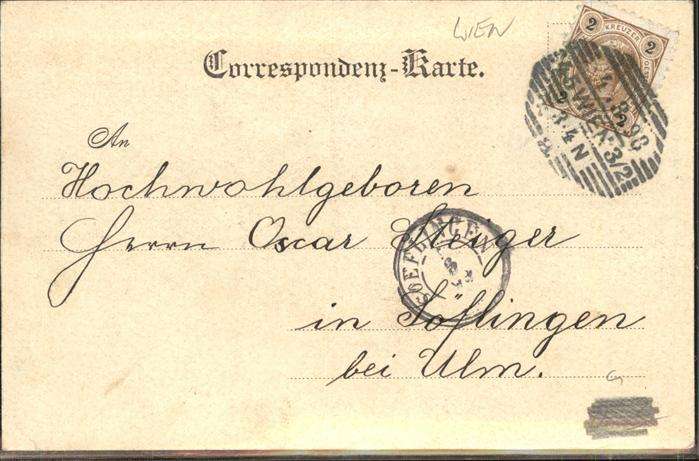 WIEN
Correspondenz-Karte.
2 KREUZER 2
WIEN 3/2
An
Hochwohlgeboren
Herrn Oscar Steiger
SOEFLINGEN
in Söflingen
bei Ulm.